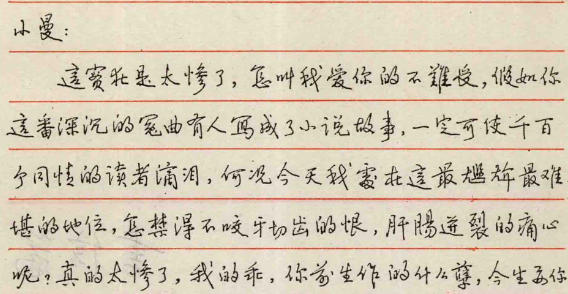 小曼：
這實在是太惨了，怎叫我爱你的不難受，假如你
這番深沉的冤曲有人写成了小说故事，一定可使千百
个同情的读者滴泪，何况今天我處在這最尴尬最难
堪的地位，怎禁得不咬牙切齿的恨，肝肠迸裂的痛心
呢？真的太惨了，我的乖，你前生作的什么孽，今生要你